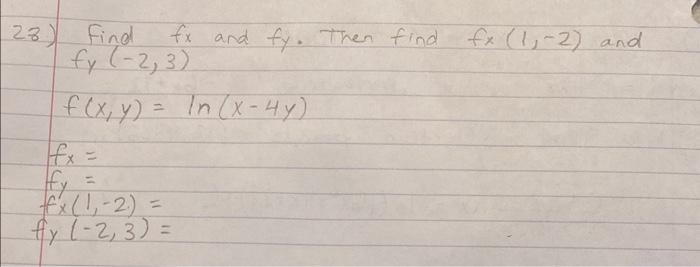 23) Find fx and fy. Then find fx (1,-2) and
fy (-2,3)
f(x,y) = ln(x-4y)
fx =
fy =
fx(1,-2) =
fy (-2,3) =